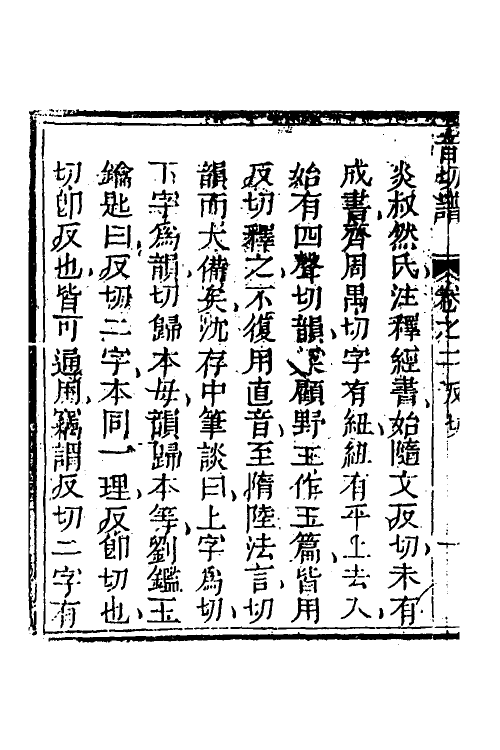 音切譜 卷之二 反切 一
炎叔然氏注釋經書始隨文反切未有
成書齊周禺切字有紐紐有平上去入
始有四聲切韻梁顧野王作玉篇皆用
反切釋之不復用直音至隋陸法言切
韻而大備矣沈存中筆談曰上字爲切
下字爲韻切歸本母韻歸本等劉鑑玉
鑰匙曰反切二字本同一理反卽切也
切卽反也皆可通用竊謂反切二字有